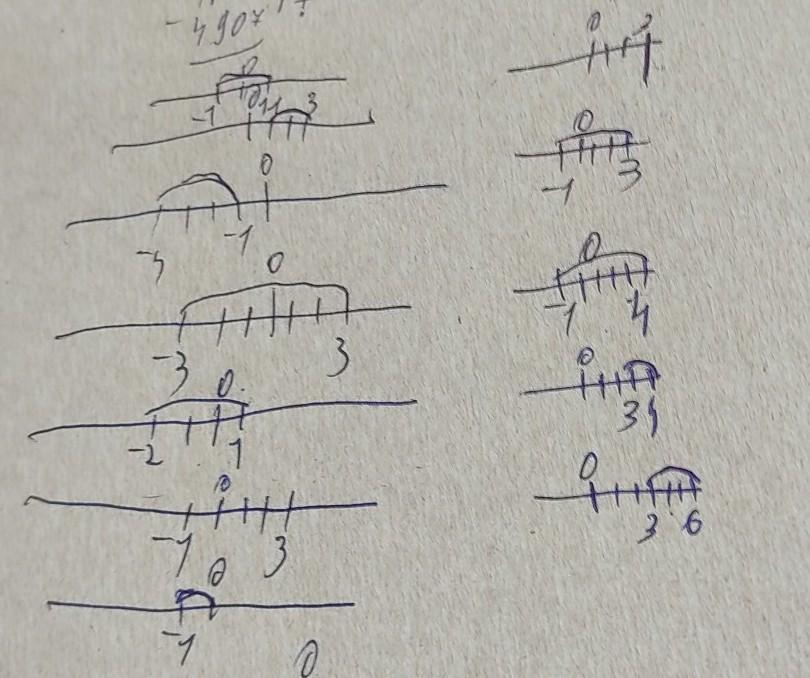 -4907
0
-1 0 1 1 3
0
-1
0
-3 3
0
-2 1
0
-1 3
0
-1
0
0 3
0
-1 3
0
-1 4
0
3 4
0
3 6